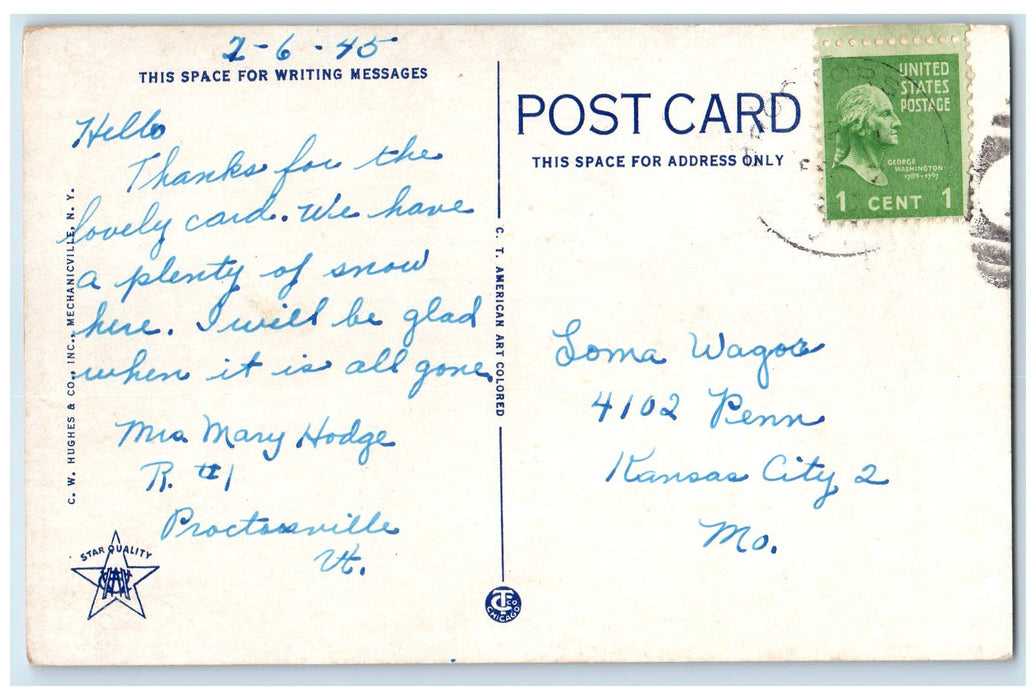 2-6-45
THIS SPACE FOR WRITING MESSAGES
Hello
Thanks for the
lovely card. We have
a plenty of snow
here. I will be glad
when it is all gone.
Mrs Mary Hodge
R. #1
Proctorsville
Vt.
C. W. HUGHES & CO., INC., MECHANICVILLE, N. Y.
STAR QUALITY
C. T. AMERICAN ART COLORED
CT CO
CHICAGO
POST CARD
THIS SPACE FOR ADDRESS ONLY
UNITED
STATES
POSTAGE
GEORGE
WASHINGTON
1789-1797
1 CENT 1
Loma Wagor
4102 Penn
Kansas City 2
Mo.